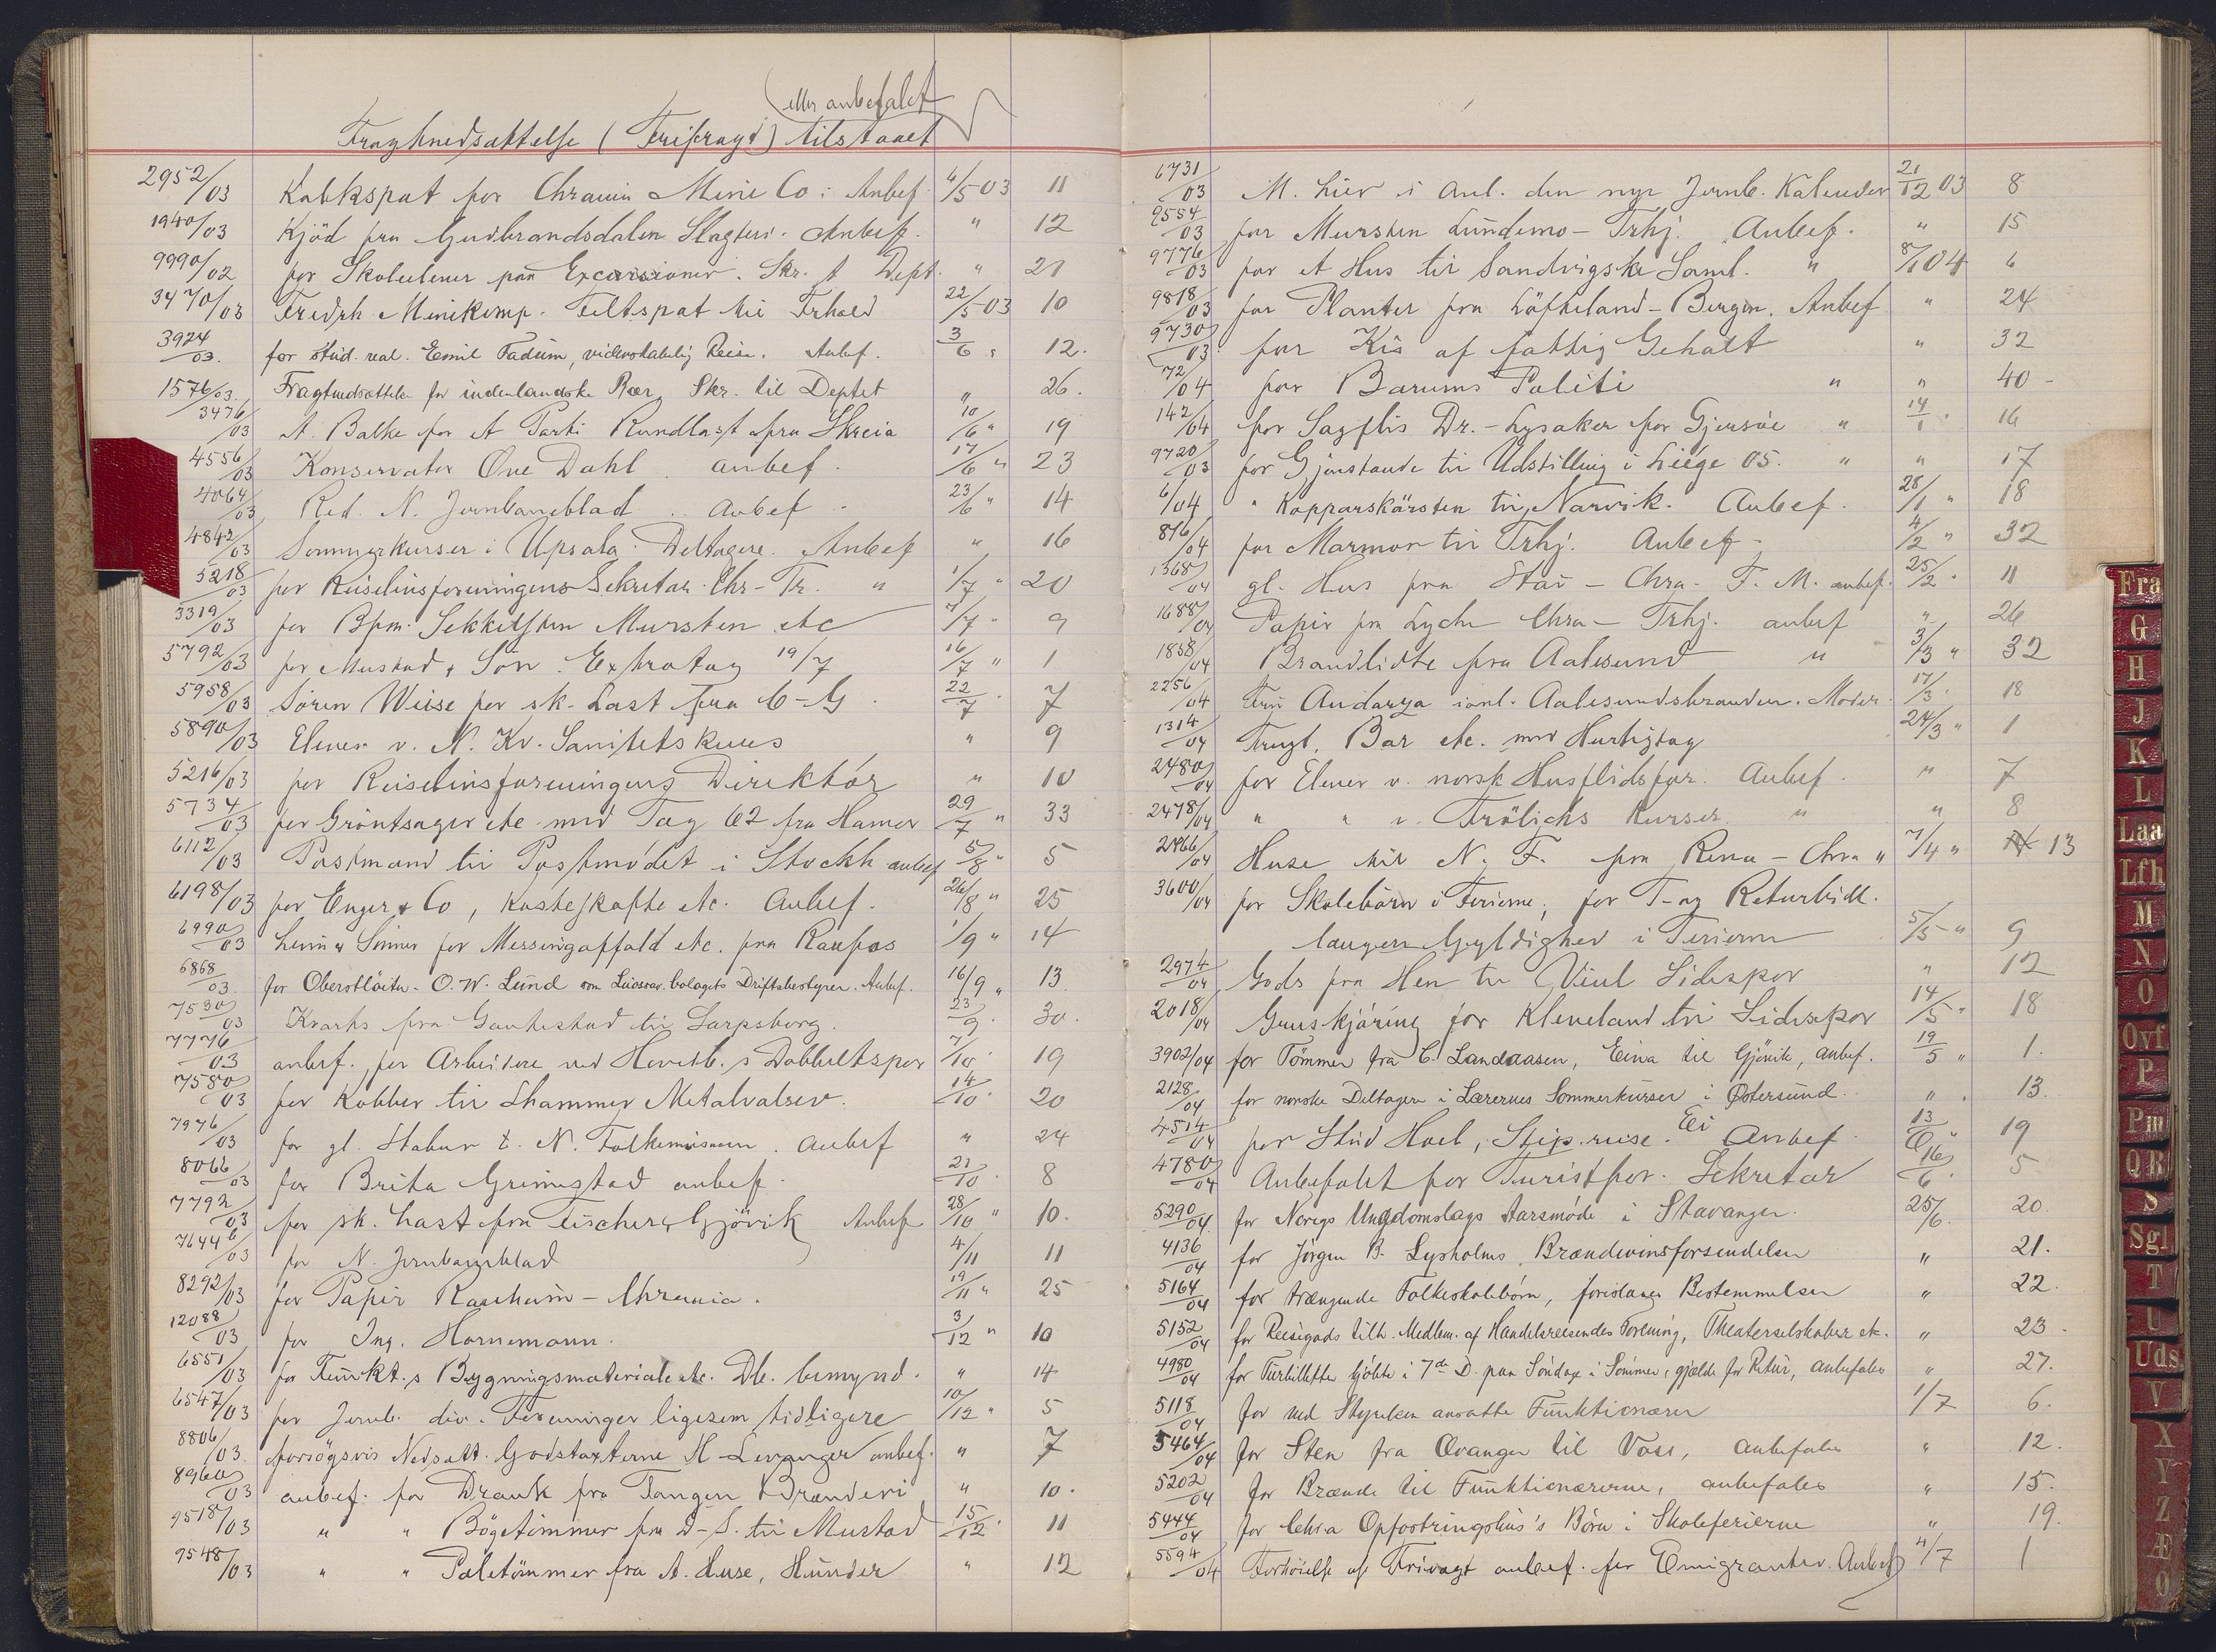 eller anbefalet
Fragtnedsættelse (Frifragt) tilstaaet
2952/03 Kalkspat for Chrania Mine Co: Anbef. 6/5 03 11
1940/03 Kjöd fra Gudbrandsdalen Slagteri. Anbef. " 12
9990/02 for Skoleelever paa Excursioner. Skr. t. Dept. " 21
3470/03 Fredrh. Minekomp. Feltspat til Frhald 22/5 03 10
3924/03 for Stud. real. Emil Fadum, videnskabelig Reise. Anbef. 3/6 " 12.
1576/03 Fragtnedsættelse for indenlandske Bær, Skr. til Deptet " 26.
3476/03 A. Balke for et Parti Rundlast fra Skreia 10/6 " 19
4556/03 Konservator Ove Dahl. anbef. 17/6 " 23
4064/03 Red. N. Jernbaneblad. anbef. 23/6 " 14
4842/03 Sommerkurser i Upsala. Deltagere. Anbef. " 16
5218/03 for Reiselivsforeningens Sekretær. Chr-Tr. " 1/7 " 20
3319/03 for Bpm. Sekkelsten Mursten etc 7/7 " 9
5792/03 for Mustad & Sön. Extratog 19/7 16/7 " 1
5958/03 Sören Wiise for sk. Last fra C-G. 22/7 . 7
5890/03 Elever v. N. Kv. Sanitetskurs " 9
5216/03 for Reiselivsforeningens Direktör " 10
5734/03 for Gröntsager etc. med Tog 62 fra Hamar 29/7 " 33
6112/03 Postmænd til Postmödet i Stockh anbef 5/8 " 5
6198/03 for Enger & Co, Kosteskafte etc. Anbef. 26/8 " 25
6990/03 & Sönner for Messingaffald etc. fra Raufos 1/9 " 14
6868/03 for Oberstlöitn. O. W. Lund som Luossav. bolagets Driftsbestyrer. Anbef. 16/9 " 13.
7530/03 Kvarts fra Gautestad til Sarpsborg. 23/9 . 30.
7776/03 anbef. for Arbeidere ved Hovedb.s Dobbeltspor 7/10 . 19
7580/03 for Kobber til Skammer Metalvalsev. 14/10 . 20
7976/03 for gl. Stabur t. N. Folkemuseum. anbef " 24
8066/03 for Brita Grimestad anbef. 21/10 . 8
7792/03 for sk. Last fra Fischer, Gjövik Anbef 28/10 " 10.
76446/03 for N. Jernbaneblad 4/11 11
8292/03 for Papir Ranheim - Chrania. 19/11 " 25
12088/03 for Ing. Hornemann. 3/12 " 10
6551/03 for Funkt.s Bygningsmateriale etc. Db. bemynd. " 14
6547/03 for Jernb. div. Foreninger ligesom tidligere 10/12 " 5
8806/03 forsögsvis Nedsatt. Godstaxterne H-Levanger anbef. " 7
8960/03 anbef. for Drank fra Tangen Brænderi " 10.
9518/03 " " Bögetömmer fra D-S. til Mustad 15/12 . 11
9548/03 " " Paletömmer fra A. Huse, Hunder " 12
6731/03 M. Lier i anl. den nye Jernb. Kalender 21/12 03 8
9554/03 for Mursten Lundemo - Trhj. Anbef. " 15
9776/03 for et Hus til Sandvigske Saml. " 8/1 04 6
9818/03 for Planter fra Löfteland - Bergen. Anbef " 24
9730/03 for Kis af fattig Gehalt " 32
72/04 for Bærums Politi " " 40 -
142/04 for Sagflis Dr. - Lysaker for Gjersöe " 14/1 . 16
9720/03 for Gjenstande til Udstilling i Liége 05. " " 17
6/04 " Kopparskärsten til Narvik. Anbef. 28/1 " 18
876/04 for Marmor til Trhj. Anbef. 4/2 " 32
1368/04 gl. Hus fra Stai - Chra. F. M. anbef. 25/2 . 11
1688/04 Papir fra Lyche Chra - Trhj. anbef " 26
1858/04 Brandlidte fra Aalesund " 3/3 " 32
2256/04 Fru Andarya i anl. Aalesundsbranden. Moder. 17/3 . 18
1314/04 Frugt, Bær etc. med Hurtigtog 24/3 " 1
2480/04 for Elever v. norsk Husflidsfor. Anbef. " 7
2478/04 " " v. Frölichs Kurser. " " 8
2466/04 Huse til N. F. fra Rena - Chra " 7/4 " 13
3600/04 for Skolebörn i Ferierne; for T- og Returbill.
længere Gyldighed i Ferierne 5/5 " 9
2974/04 Gods fra Hen til Viul Sidespor " 12
2018/04 Gruskjöring for Kleveland til Sidespor 14/5 " 18
3902/04 for Tömmer fra C. Landaasen, Eina til Gjövik, anbef. 19/5 " 1.
2128/04 for norske Deltagere i Lærernes Sommerkurser i Östersund. " . 13.
4514/04 for Stud Hoel, Stip. reise. Ei Anbef. 13/6 " 19
4780/04 Anbefalet for Turistfor. Sekretær 16/6 . 5
5290/04 for Noregs Ungdomslags Aarsmöde i Stavanger. 25/6. 20.
4136/04 for Jörgen B. Lysholms Brændevinsforsendelser " 21.
5164/04 for trængende Folkeskolebörn, foreslaaes Bestemmelser " 22.
5152/04 for Reisegods tilh. Medlem. af Handelsreisendes Forening, Theaterselskaber etc. " 23.
4980/04 for Turbilletter kjöbte i 7de D. paa Söndage i Sommer, gjælde for Retur, anbefales " 27.
5118/04 for ved Styrelsen ansatte Funktionærer 1/7 6.
5464/04 for Sten fra Evanger til Voss, anbefales " 12.
5202/04 for Brænde til Funktionærerne, anbefales " 15.
5444/04 for Chr.a Opfostringshus's Börn i Skoleferierne " 19.
5594/04 Forhöielse af Frivægt anbef. for Emigranter. Anbef 4/7 1
Fra
G
H
J
K
L
Laa
Lfh
M
N
O
Ovf
P
Pm
QR
S
Sgl
T
U
Uds
V
X
Y
Z
Æ
Ø